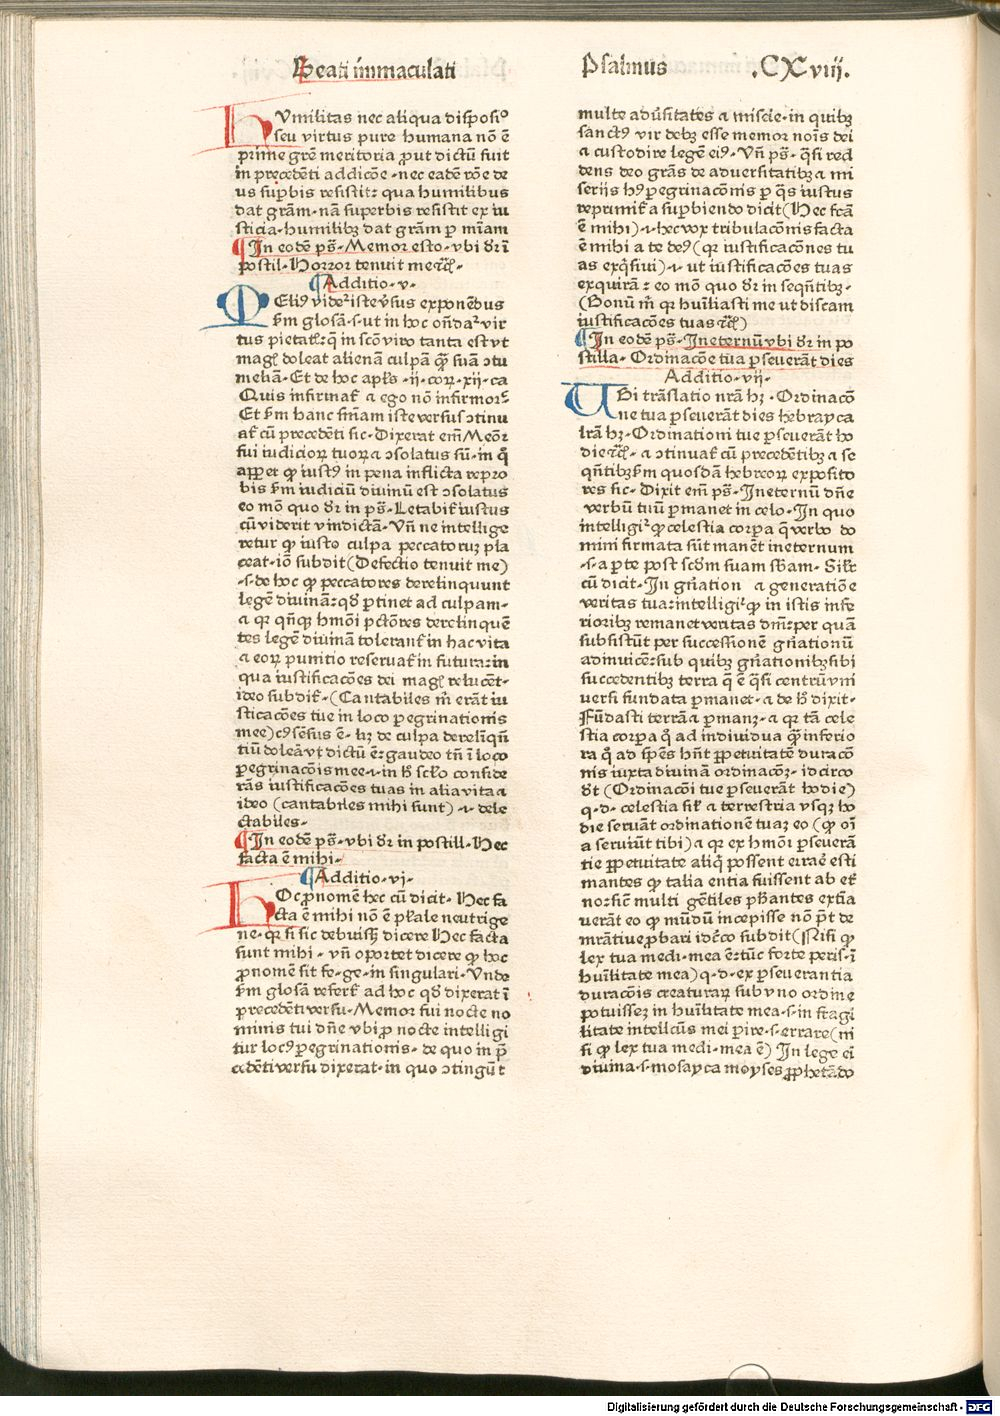 Beati immaculati
Psalmus .CXviij.
HVmilitas nec aliqua disposiº
seu virtus pure humana nõ ẽ
prime grẽ meritoria ꝓut dictũ fuit
in precedẽti addicõe · nec eadẽ rõe de
us suꝑbis resistit: qua humilibus
dat grãm · nã superbis resistit ex iu
sticia · humilibꝫ dat grãm ꝑ mĩam
¶ In eodẽ pš · Memor esto · vbi dr̃ ĩ
postil · Horror tenuit me ⁊c̃ ·
¶ Additio · v ·
MEliꝰ videt̉ iste v̉sus exponẽdus
s̃m glosã · s · ut in hoc oñdat̉ vir
tus pietat̉: ꝙ in scõ viro tanta est vt
magꝭ doleat alienã culpã ꝙ̃ suã ꝯtu
meliã · Et de hoc apl̃s · ii · coꝝ · xii · ca
Quis infirmat̉ ⁊ ego nõ infirmor:
Et s̃m hanc sniam iste versus ꝯtinu
at̉ cũ precedẽti sic · Dixerat em̃ Meõr
fui iudicioꝝ tuoꝝ ⁊ ꝯsolatus sũ · in q̃
apꝑet ꝙ iustꝰ in pena inflicta repro
bis s̃m iudiciũ diuinũ est ꝯsolatus
eo mõ quo dr̃ in pš · Letabit̉ iustus
cũ viderit vindictã · Vñ ne intellige
retur ꝙ iusto culpa peccatoruꝫ pla
ceat · iõ subdit (Defectio tenuit me)
· s · de hoc ꝙ peccatores derelinquunt
legẽ diuinã: qd̃ ꝑtinet ad culpam ·
⁊ qꝛ qñqꝫ hmõi pctõres derelinquẽ
tes legẽ diuinã tolerant̉ in hac vita
⁊ eoꝝ punitio reseruat̉ in futura: in
qua iustificacões dei magꝭ relucẽt ·
ideo subdit̉ · (Cantabiles m̃ erãt iu
sticacões tue in loco peregrinationis
mee) cꝰ sẽsus ẽ · lꝫ de culpa derelĩqñ
tiũ doleã vt dictũ ẽ: gaudeo tñ ĩ loco
peregrinacõis mee · i · in h̃ scl̃o conside
rãs iustificacões tuas in alia vita ⁊
ideo (cantabiles mihi sunt) · i · dele
ctabiles ·
¶ In eodẽ pš · vbi dr̃ in postill · Hec
facta ẽ mihi ·
¶ Additio · vi ·
HOc ꝓnomẽ hec cũ dicit · Hec fa
cta ẽ mihi nõ ẽ pl̃ale neutri ge
ne · qꝛ si sic debuissꝫ dicere Hec facta
sunt mihi · vñ oportet dicere ꝙ hoc
ꝓnomẽ sit fe · ge · in singulari · Vnde
s̃m glosã refert̉ ad hoc qd̃ dixerat ĩ
precedẽti versu · Memor fui nocte no
minis tui dñe vbi ꝑ nocte intelligi
tur locꝰ peregrinationis · de quo in p̃
cedẽti versu dixerat · in quo ꝯtingũt
multe adũsitates ⁊ miscie · in quibꝫ
sanctꝰ vir debꝫ esse memor noĩs dei
⁊ custodire legẽ eiꝰ · Vñ pš · q̃si red
dens deo grãs de aduersitatibꝫ ⁊ mi
serijs hꝰ peregrinacõnis ꝑ q̃s iustus
reprimit̉ a suꝑbiendo dicit (Hec fc̃ã
ẽ mihi) · i · hec vox tribulacõnis facta
ẽ mihi a te deꝰ (qꝛ iustificacõnes tu
as exq̃siui) · i · ut iustificacões tuas
exquirã: eo mõ quo dr̃ in seqñtibꝫ ·
(Bonũ m̃ qꝛ huĩliasti me ut discam
iustificacões tuas ⁊c̃)
¶ In eodẽ pš · In eternũ vbi dr̃ in po
stilla · Ordinacõe tua ꝑseuerãt dies
Additio · vij ·
UBi trãslatio nrã hꝫ · Ordinacõ
ne tua ꝑseuerãt dies hebrayca
lrã hꝫ · Ordinationi tue ꝑseuerãt ho
die ⁊c̃ · ⁊ ꝯtinuat̉ cũ precedẽtibꝫ ⁊ se
qñtibꝫ s̃m quosdã hebreoꝝ exposito
res sic · Dixit em̃ pš · In eternũ dñe
verbũ tuũ ꝑmanet in celo · In quo
intelligit̉ ꝙ celestia corꝑa q̃ verbo do
mini firmata sũt manẽt in eternum
· s · a ꝑte post scd̃m suam sb̃am · Silr̃
cũ dicit · In gñation ⁊ generatiõe
veritas tua: intelligit̉ ꝙ in istis infe
rioribꝫ remanet veritas dm̃: per quã
subsistũt per successionẽ gñationũ
adinuicẽ: sub quibꝫ gñationibꝫ sibi
succedentibꝫ terra q̃ ẽ q̃si centrũ vni
uersi fundata ꝑmanet · ⁊ de h̃ dixit ·
Fũdasti terrã ⁊ ꝑmanꝫ · ⁊ qꝛ tã cele
stia corꝑa q̃ ad indiuidua ꝙ̃ inferio
ra q̃ ad sp̃es hñt ꝑpetuitatẽ duracõ
nis iuxta diuinã ordinacõꝫ · idcirco
dt̃ (Ordinacõi tue ꝑseuerãt hodie)
· q · d · celestia sil̃ ⁊ terrestria vsqꝫ ho
die seruãt ordinationẽ tuaꝫ eo (ꝙ oĩ
a seruiũt tibi) ⁊ qꝛ ex hmõi ꝑseuerã
tie ꝑpetuitate aliq̃ possent errare esti
mantes ꝙ talia entia fuissent ab et̉
no: sicut multi gẽtiles ph̃antes extĩa
uerãt eo ꝙ mũdũ incepisse nõ p̃t de
mr̃atiue ꝓbari idc̃o subdit (Nisi ꝙ
lex tua medi · mea ẽ: tũc forte peris · ĩ
huĩlitate mea) q · d · ex ꝑseuerantia
duracõis creaturaꝝ sub vno ordine
potuisseꝫ in huĩlitate mea · s · in fragi
litate intellcũs mei ꝑire · s · errare (ni
si ꝙ lex tua medi · mea ẽ) In lege eĩ
diuina · s · mosayca moyses ꝓphetãdo
Digitalisierung gefördert durch die Deutsche Forschungsgemeinschaft - DFG